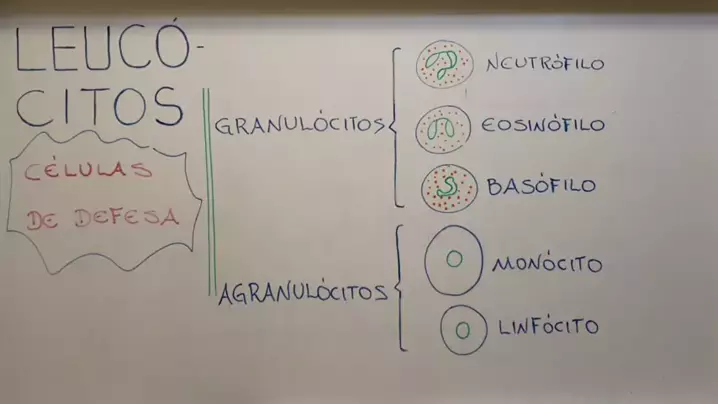 LEUCÓ-
CITOS
CÉLULAS
DE DEFESA
GRANULÓCITOS
NEUTRÓFILO
EOSINÓFILO
BASÓFILO
AGRANULÓCITOS
MONÓCITO
LINFÓCITO